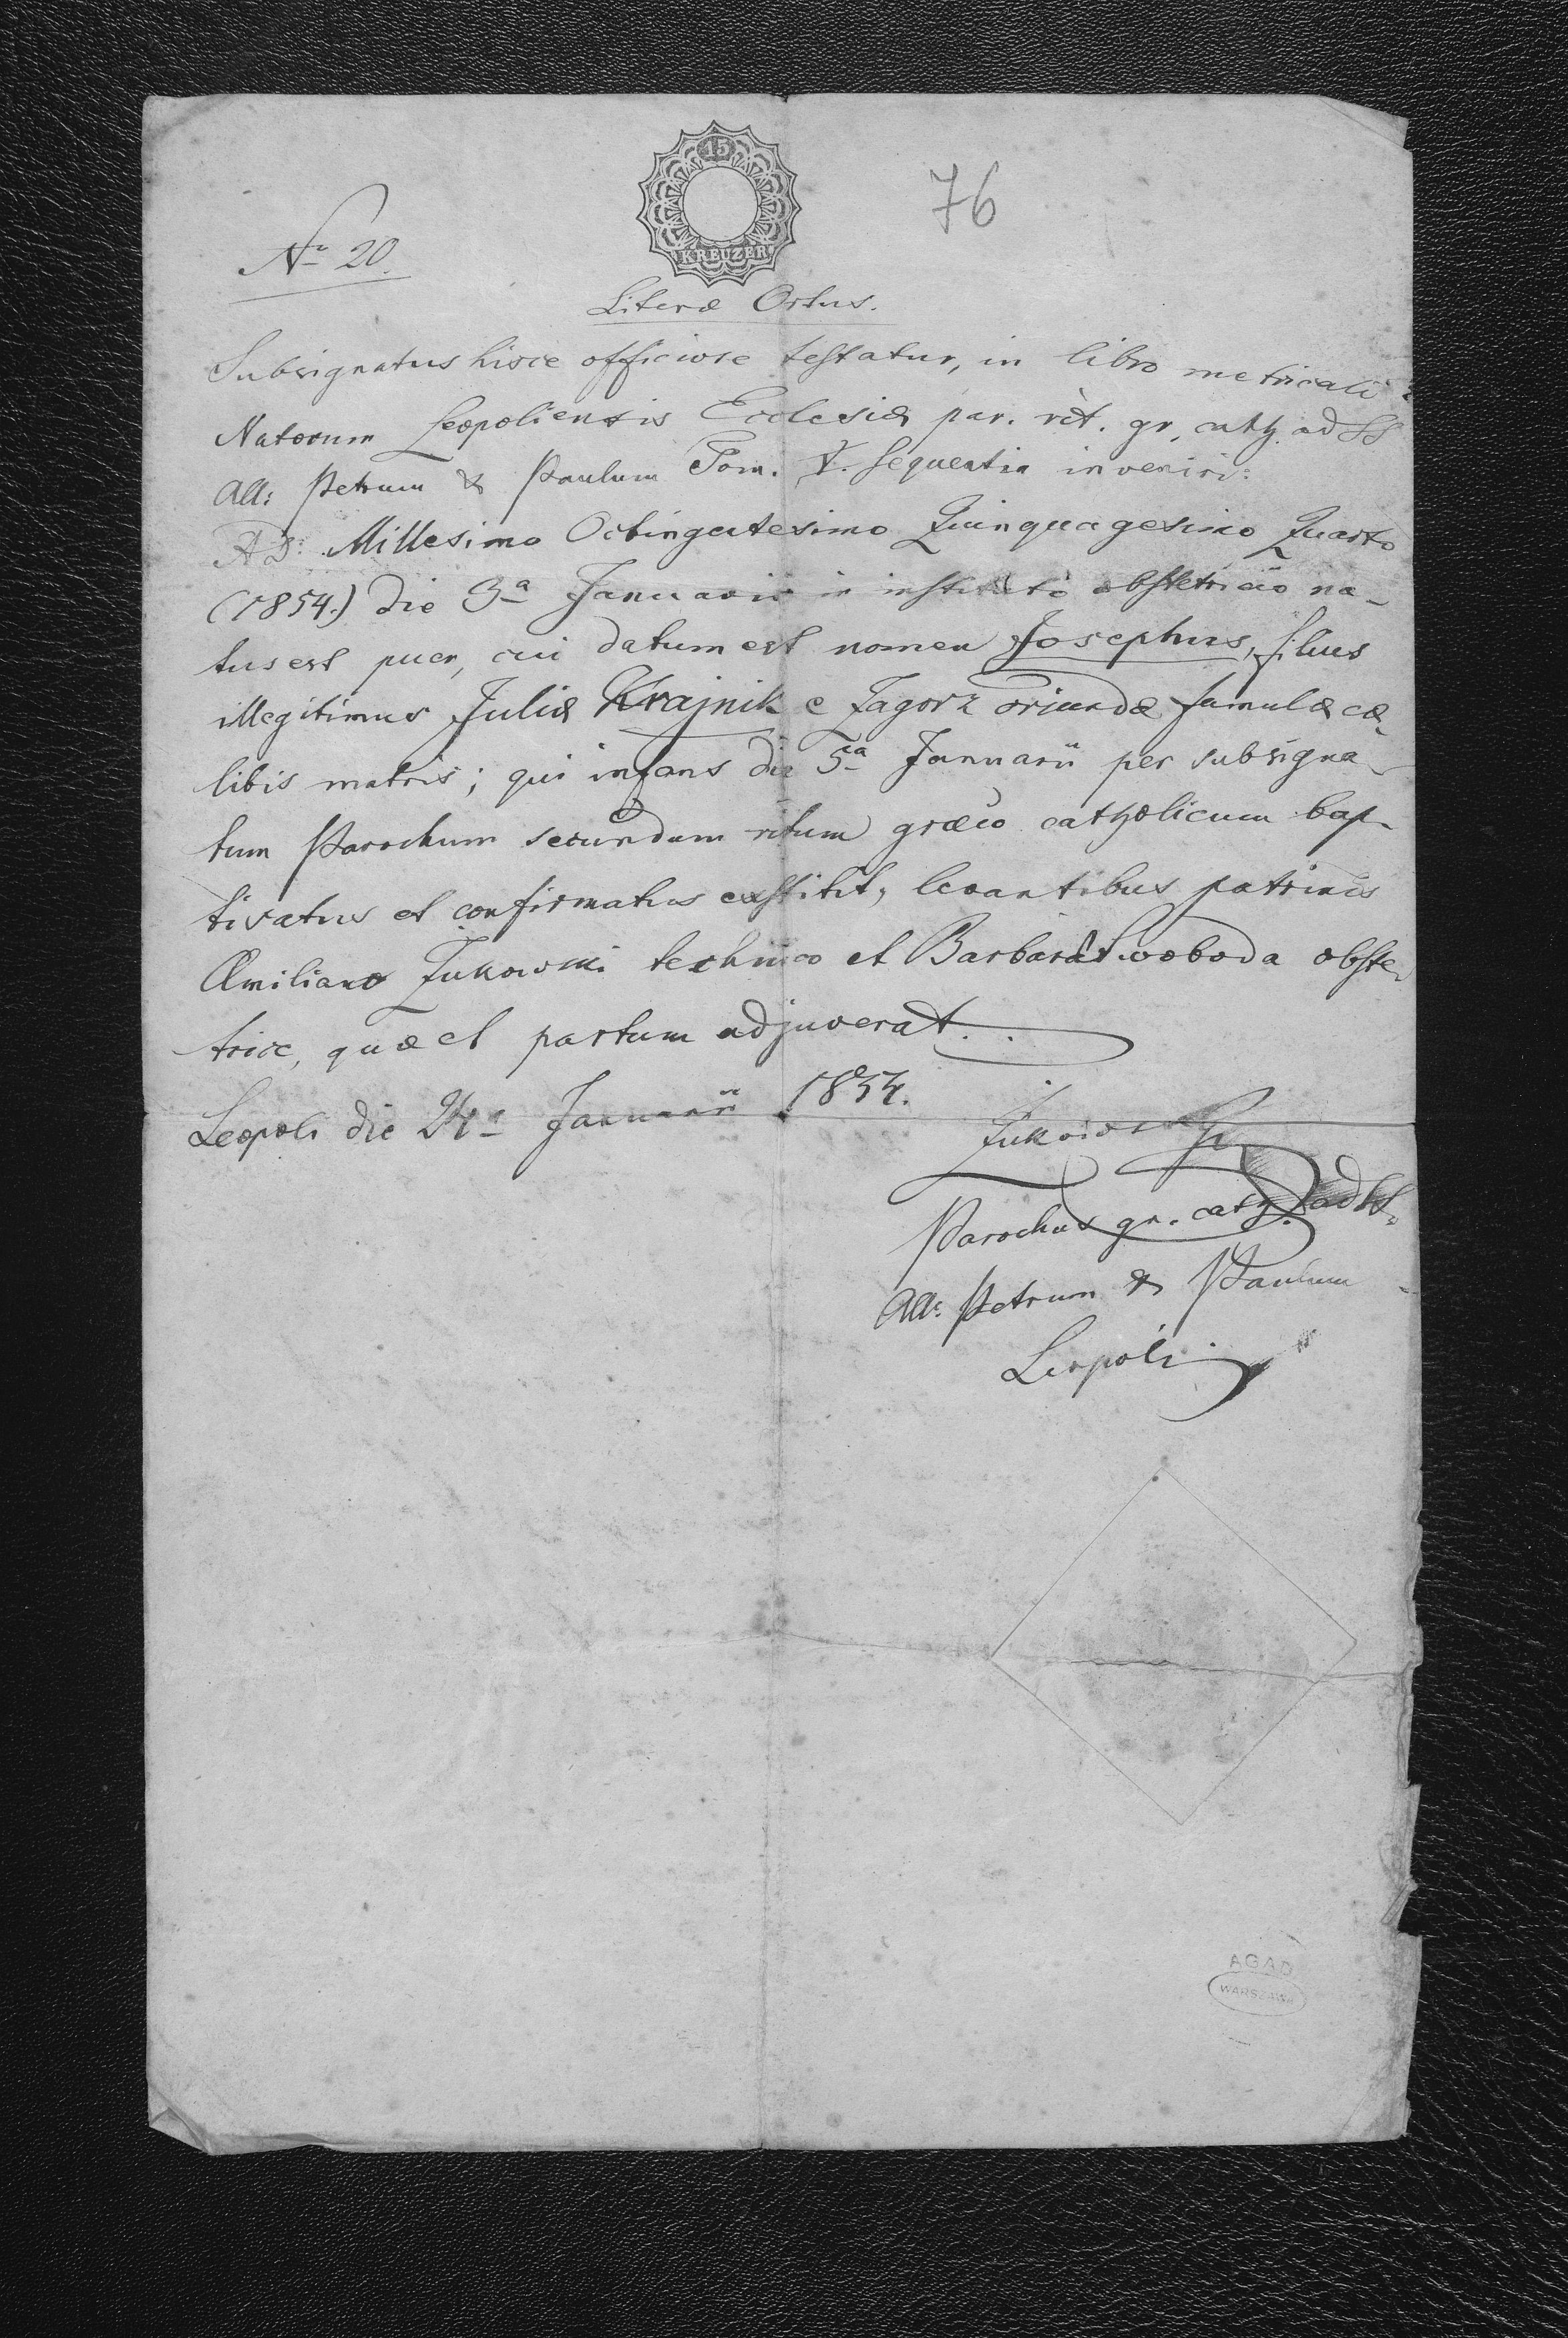 15
KREUZER
76
Nr 20.
Literæ Ortus.
Subsignatus hisce officiose testatur, in libro metricali
Natorum Leopoliensis Ecclesiæ par. rit. gr. cath. ad SS.
App: Petrum & Paulum Tom. V. sequentia inveniri:
A.D: Millesimo Octingentesimo Quinquagesimo Quarto
(1854.) die 3a Januarii in instituto obstetricio na-
tus est puer, cui datum est nomen Josephus, filius
illegitimus Juliæ Krajnik e Zagorz oriundæ famulæ cæ-
libis matris; qui infans die 5a Januarii per subsigna-
tum Parochum secundum ritum græco catholicum bap-
tisatus et confirmatus exstitit, levantibus patrinis
Æmiliano Żukowski technico et Barbara Swoboda obste-
trice, quæ et partum adjuverat.
Leopoli die 24a Januarii 1854.
Żukowski
Parochus gr. cath. ad SS.
App: Petrum & Paulum
Leopoli
AGAD
WARSZAWA